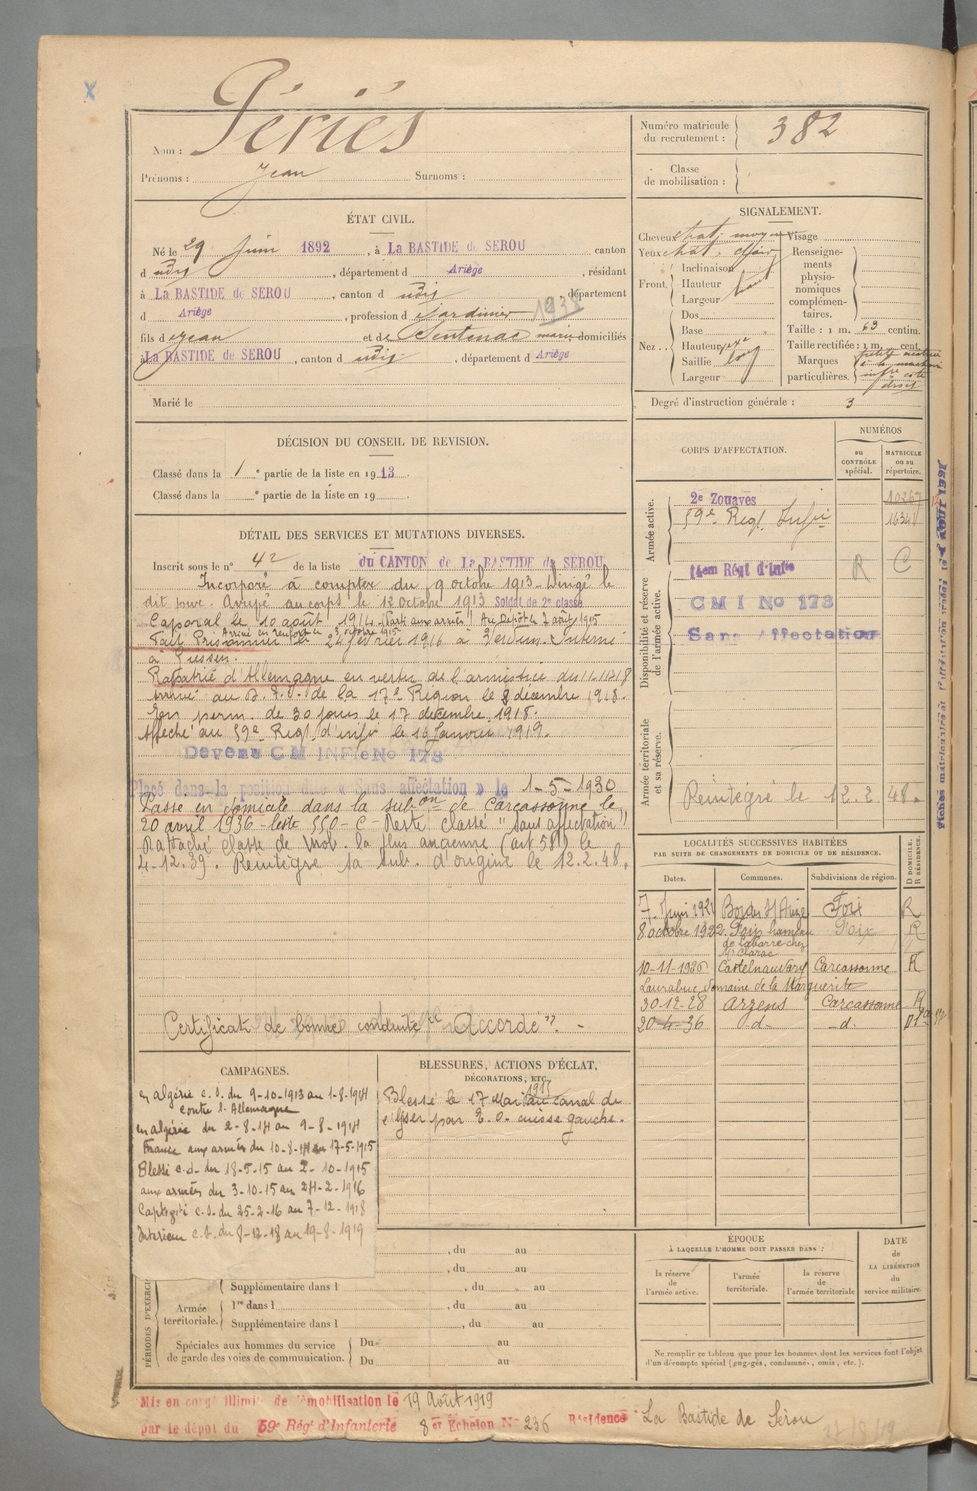 Périés
Nom :
Prénoms : Jean Surnoms :
Numéro matricule du recrutement : 382
Classe de mobilisation :
ÉTAT CIVIL.
Né le 29 Juin 1892, à La BASTIDE de SEROU canton
d udis, département d Ariège, résidant
à La BASTIDE de SEROU, canton d udis, département
d Ariège, profession d Jardinier 1938
fils d Jean et de Sentenac marie domiciliés
à La BASTIDE de SEROU, canton d udis, département d Ariège
Marié le
SIGNALEMENT.
Cheveux chat. moyen Visage
Yeux chat. clair
Front. Inclinaison
Hauteur
Largeur
Nez. Dos
Base
Hauteur
Saillie long
Largeur
Renseignements physionomiques complémentaires.
Taille : 1 m. 63 centim.
Taille rectifiée : 1 m. cent.
Marques particulières.
droit
Degré d'instruction générale : 3
DÉCISION DU CONSEIL DE REVISION.
Classé dans la 1e partie de la liste en 1913.
Classé dans la e partie de la liste en 19
DÉTAIL DES SERVICES ET MUTATIONS DIVERSES.
Inscrit sous le n° 42 de la liste du CANTON de La BASTIDE de SEROU
Incorporé à compter du 9 octobre 1913 - Dirigé le
dit jour. Arrivé au corps le 12 octobre 1913 Soldat de 2e classe
Caporal le 10 août 1914. Parti aux armées Au Dépôt le 2 août 1915
Arrivé en renfort le 3 octobre 1915
Fait Prisonnier le 24 février 1916 à Verdun. Interné
à Giessen.
Rapatrié d'Allemagne en vertu de l'armistice du 11.11.18
arrivé au D. T. I. de la 17e Région le 8 décembre 1918.
En perm. de 30 jours le 17 décembre 1918.
Affecté au 59e Regt d'infie le 16 Janvier 1919.
Devenu CM INFie No 173
Placé dans la position dite « Sans affectation » le 1-5-1930
Passe en domicile dans la subon de Carcassonne le
20 avril 1936 - liste 550 - C - Reste classé "sans affectation"
Rattaché classe de mob. la plus ancienne (art 58) le
4-12.39. Réintégré sa sub. d'origine le 12.2.48.
Certificat de bonne conduite "Accordé". -
CORPS D'AFFECTATION.
NUMÉROS
au CONTRÔLE spécial.
MATRICULE ou au répertoire.
Armée active.
2e Zouaves 10267
59e Regt Infie 1634
Disponibilité et réserve de l'armée active.
14em Régt d'Infie R C
CMI No 173
Sans Affectation
Armée territoriale et sa réserve.
Réintégré le 12.2.48.
LOCALITÉS SUCCESSIVES HABITÉES
PAR SUITE DE CHANGEMENTS DE DOMICILE OU DE RÉSIDENCE.
Dates. Communes. Subdivisions de région. D DOMICILE. R RÉSIDENCE.
7 Juin 1921 Bordes s/ Arize Foix R
8 octobre 1922 Foix hameau de Labarre chez Mr Clarac Foix R
10-11-1926 Castelnaudary Carcassonne R
Laurabuc, domaine de la Marguerite
30-12-28 Arzens Carcassonne R
20-4-36 -d- -d- D
CAMPAGNES.
en algérie c. s. du 9-10-1913 au 1-8-1914
contre l'Allemagne
en algérie du 2-8-14 au 9-8-1914
France aux armées du 10-8-14 au 17-5-1915
Blessé c.d. du 18-5-15 au 2-10-1915
aux armées du 3-10-15 au 24-2-1916
Captivité c.s. du 25-2-16 au 7-12-1918
Intérieur c.s. du 8-12-18 au 19-8-1919
BLESSURES, ACTIONS D'ÉCLAT,
DÉCORATIONS, ETC.
Blessé le 17 Mai 1915 au canal de
l'Yser par E. O. cuisse gauche.
PÉRIODES D'EXERCI
, du au
, du au
Supplémentaire dans l , du au
Armée territoriale. 1re dans l , du au
Supplémentaire dans l , du au
Spéciales aux hommes du service de garde des voies de communication. Du au
Du au
ÉPOQUE
À LAQUELLE L'HOMME DOIT PASSER DANS :
la réserve de l'armée active.
l'armée territoriale.
la réserve de l'armée territoriale
DATE de LA LIBÉRATION du service militaire.
Ne remplir ce tableau que pour les hommes dont les services font l'objet
d'un décompte spécial (engagés, condamnés, omis, etc.).
Mis en congé illimité de démobilisation le 19 Août 1919
par le dépôt du 59e Régt d'Infanterie 8e Echelon N° 236 Résidence La Bastide de Sérou